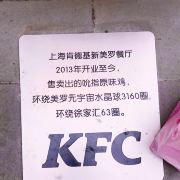 上海肯德基新美罗餐厅
2013年开业至今，
售卖出的吮指原味鸡，
环绕美罗元宇宙水晶球3160圈，
环绕徐家汇63圈。
KFC